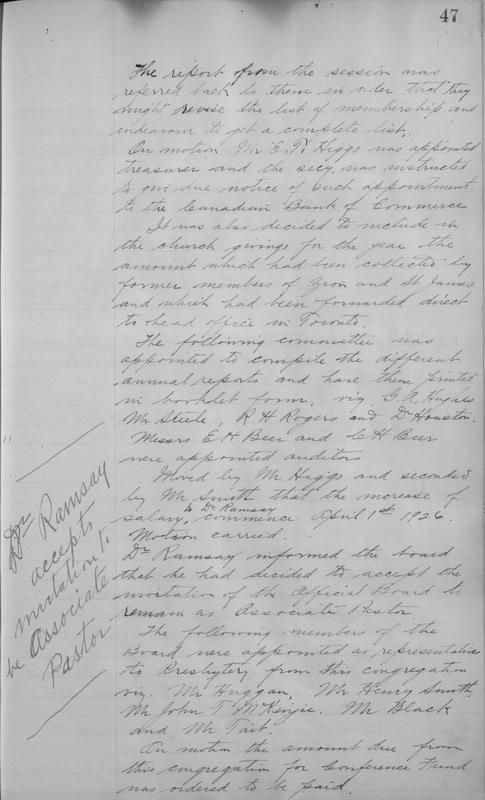 47
The report from the session was
referred back to them in order that they
might revise the list of membership and
endeavour to get a complete list.
On motion Mr E. T. Higgs was appointed
treasurer and the secy. was instructed
to give due notice of such appointment
to the Canadian Bank of Commerce
It was also decided to include in
the church givings for the year the
amount which had been collected by
former members of Zion and St James
and which had been forwarded direct
to head office in Toronto.
The following committee was
appointed to compile the different
annual reports and have them printed
in booklet form. viz. G. A. Hughes
Mr Steele, R H Rogers and Dr Houston.
Messrs E H Beer and C H Beer
were appointed auditors
Moved by Mr Higgs and seconded
by Mr Smith that the increase of
to Dr Ramsay
salary, commence April 1st 1926.
Motion carried.
Dr Ramsay informed the board
that he had decided to accept the
invitation of the Official Board to
remain as Associate Pastor
The following members of the
Board were appointed as representatives
to Presbytery from this congregation
viz. Mr Huggan, Mr Henry Smith
Mr John T McKenzie. Mr Black
and Mr Tait.
On motion the amount due from
this congregation for Conference Fund
was ordered to be paid.
Dr Ramsay
accepts
invitation to
be Associate
Pastor